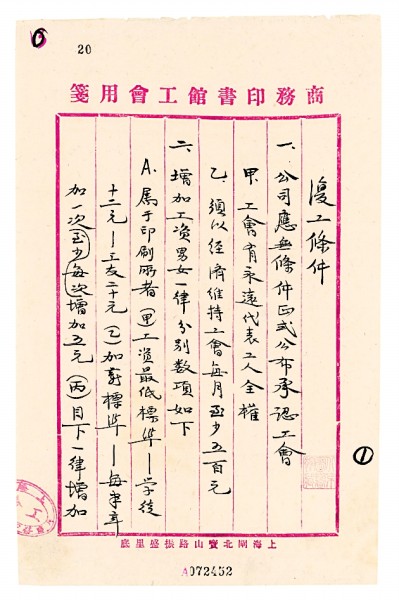 20
商務印書館工會用箋
復工條件
一、公司應無條件正式公布承認工會
甲、工會有永遠代表工人全權
乙、須以經濟維持工會每月至少五百元
二、增加工資男女一律分別數項如下
A、屬于印刷所者(甲)工資最低標準—學徒
十二元—工友二十元(乙)加薪標準—每半年
加一次至少每次增加五元(丙)目下一律增加
①
上海閘北寶山路振盛里底
A072452